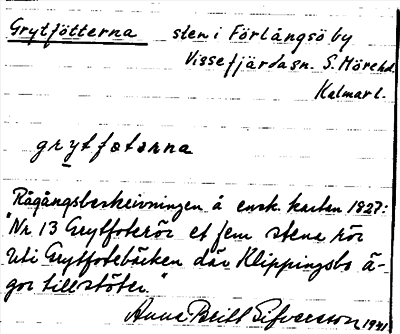 Grytfötterna sten i Förlångsö by
Vissefjärda sn. S. Möre hd.
Kalmar l.
grytføtənna
Rågångsbeskrivningen å ensk. kartan 1827:
"Nr 13 Grytfoterör et fem stena rör
uti Grytfotebäcken där Klippingsbo ä-
gor tillstöter."
Anna-Britt Sifversson 1941